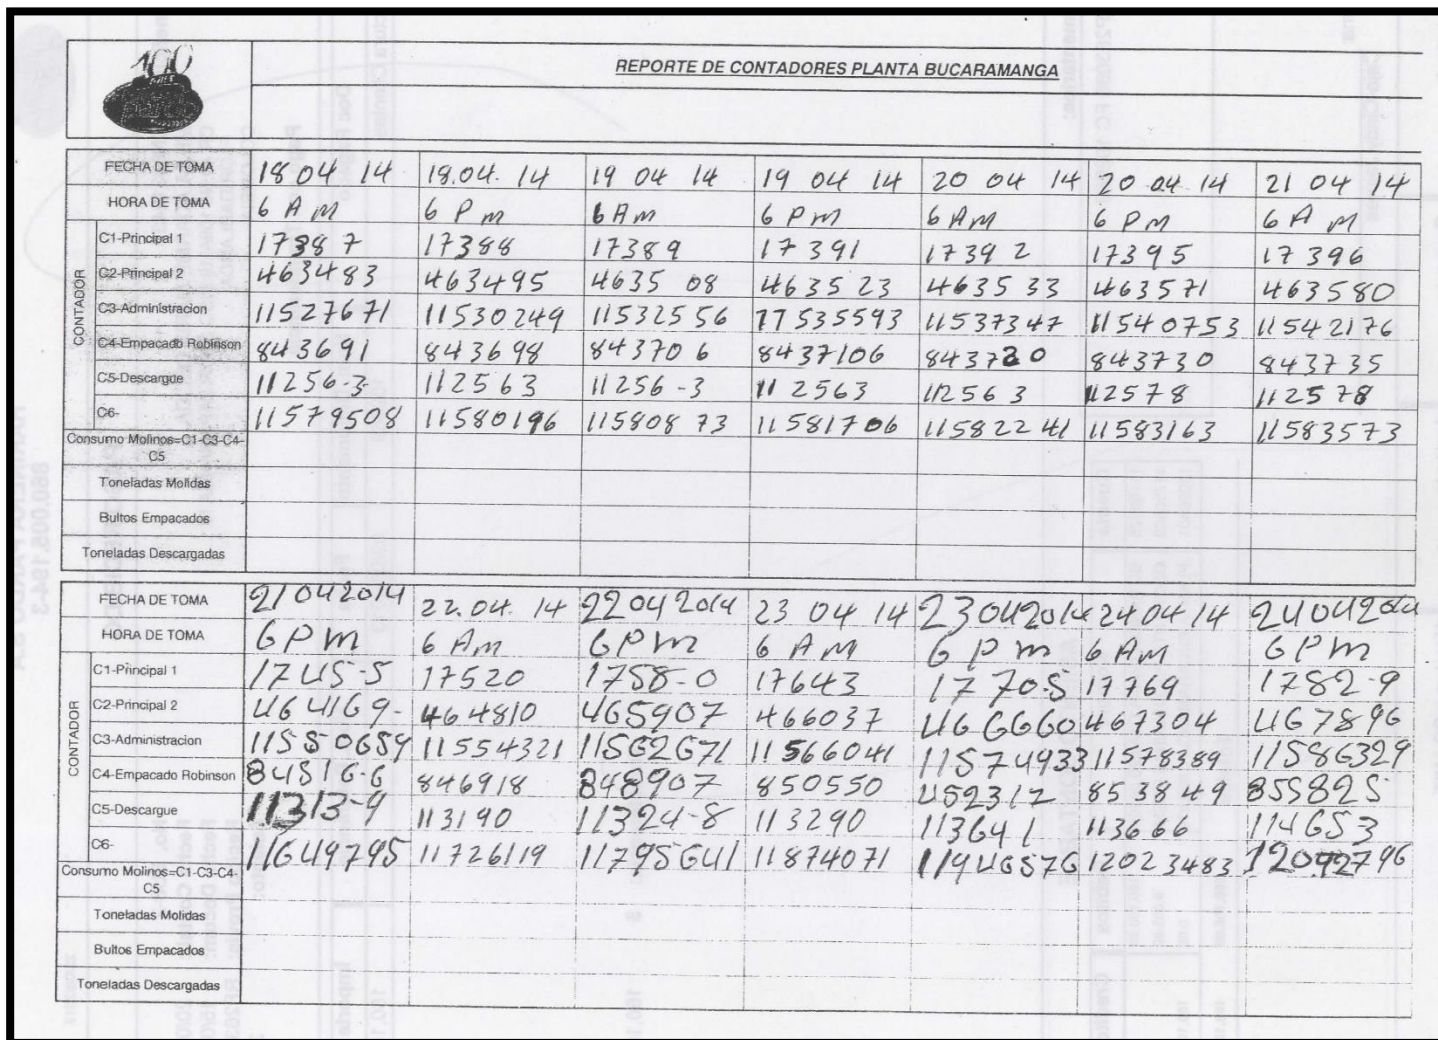 100
REPORTE DE CONTADORES PLANTA BUCARAMANGA
FECHA DE TOMA 18 04 14 18.04. 14 19 04 14 19 04 14 20 04 14 20 04. 14 21 04 14
HORA DE TOMA 6 AM 6 Pm 6 Am 6 PM 6 AM 6 PM 6 AM
CONTADOR
C1-Principal 1 17387 17388 17389 17391 17392 17395 17396
C2-Principal 2 463483 463495 463508 463523 463533 463571 463580
C3-Administracion 11527671 11530249 11532556 11535593 11537347 11540753 11542176
C4-Empacado Robinson 843691 843698 843706 8437106 843720 843730 843735
C5-Descargue 11256-3 112563 11256-3 112563 112563 112578 112578
C6- 11579508 11580196 11580873 11581706 11582241 11583163 11583573
Consumo Molinos=C1-C3-C4-
C5
Toneladas Molidas
Bultos Empacados
Toneladas Descargadas
FECHA DE TOMA 21042014 22.04. 14 22042014 23 04 14 23042014 24 04 14 24042014
HORA DE TOMA 6 PM 6 Am 6 PM 6 AM 6 PM 6 AM 6 PM
CONTADOR
C1-Principal 1 1745-5 17520 1758-0 17643 1770-5 17769 1782-9
C2-Principal 2 464169- 464810 465907 466037 466660 467304 467896
C3-Administracion 11550659 11554321 11562671 11566041 11574933 11578389 11586329
C4-Empacado Robinson 84516-6 846918 848907 850550 452312 853849 855825
C5-Descargue 11313-9 113190 11324-8 113290 113641 113666 114653
C6- 11649795 11726119 11795641 11874071 11946576 12023483 12092796
Consumo Molinos=C1-C3-C4-
C5
Toneladas Molidas
Bultos Empacados
Toneladas Descargadas